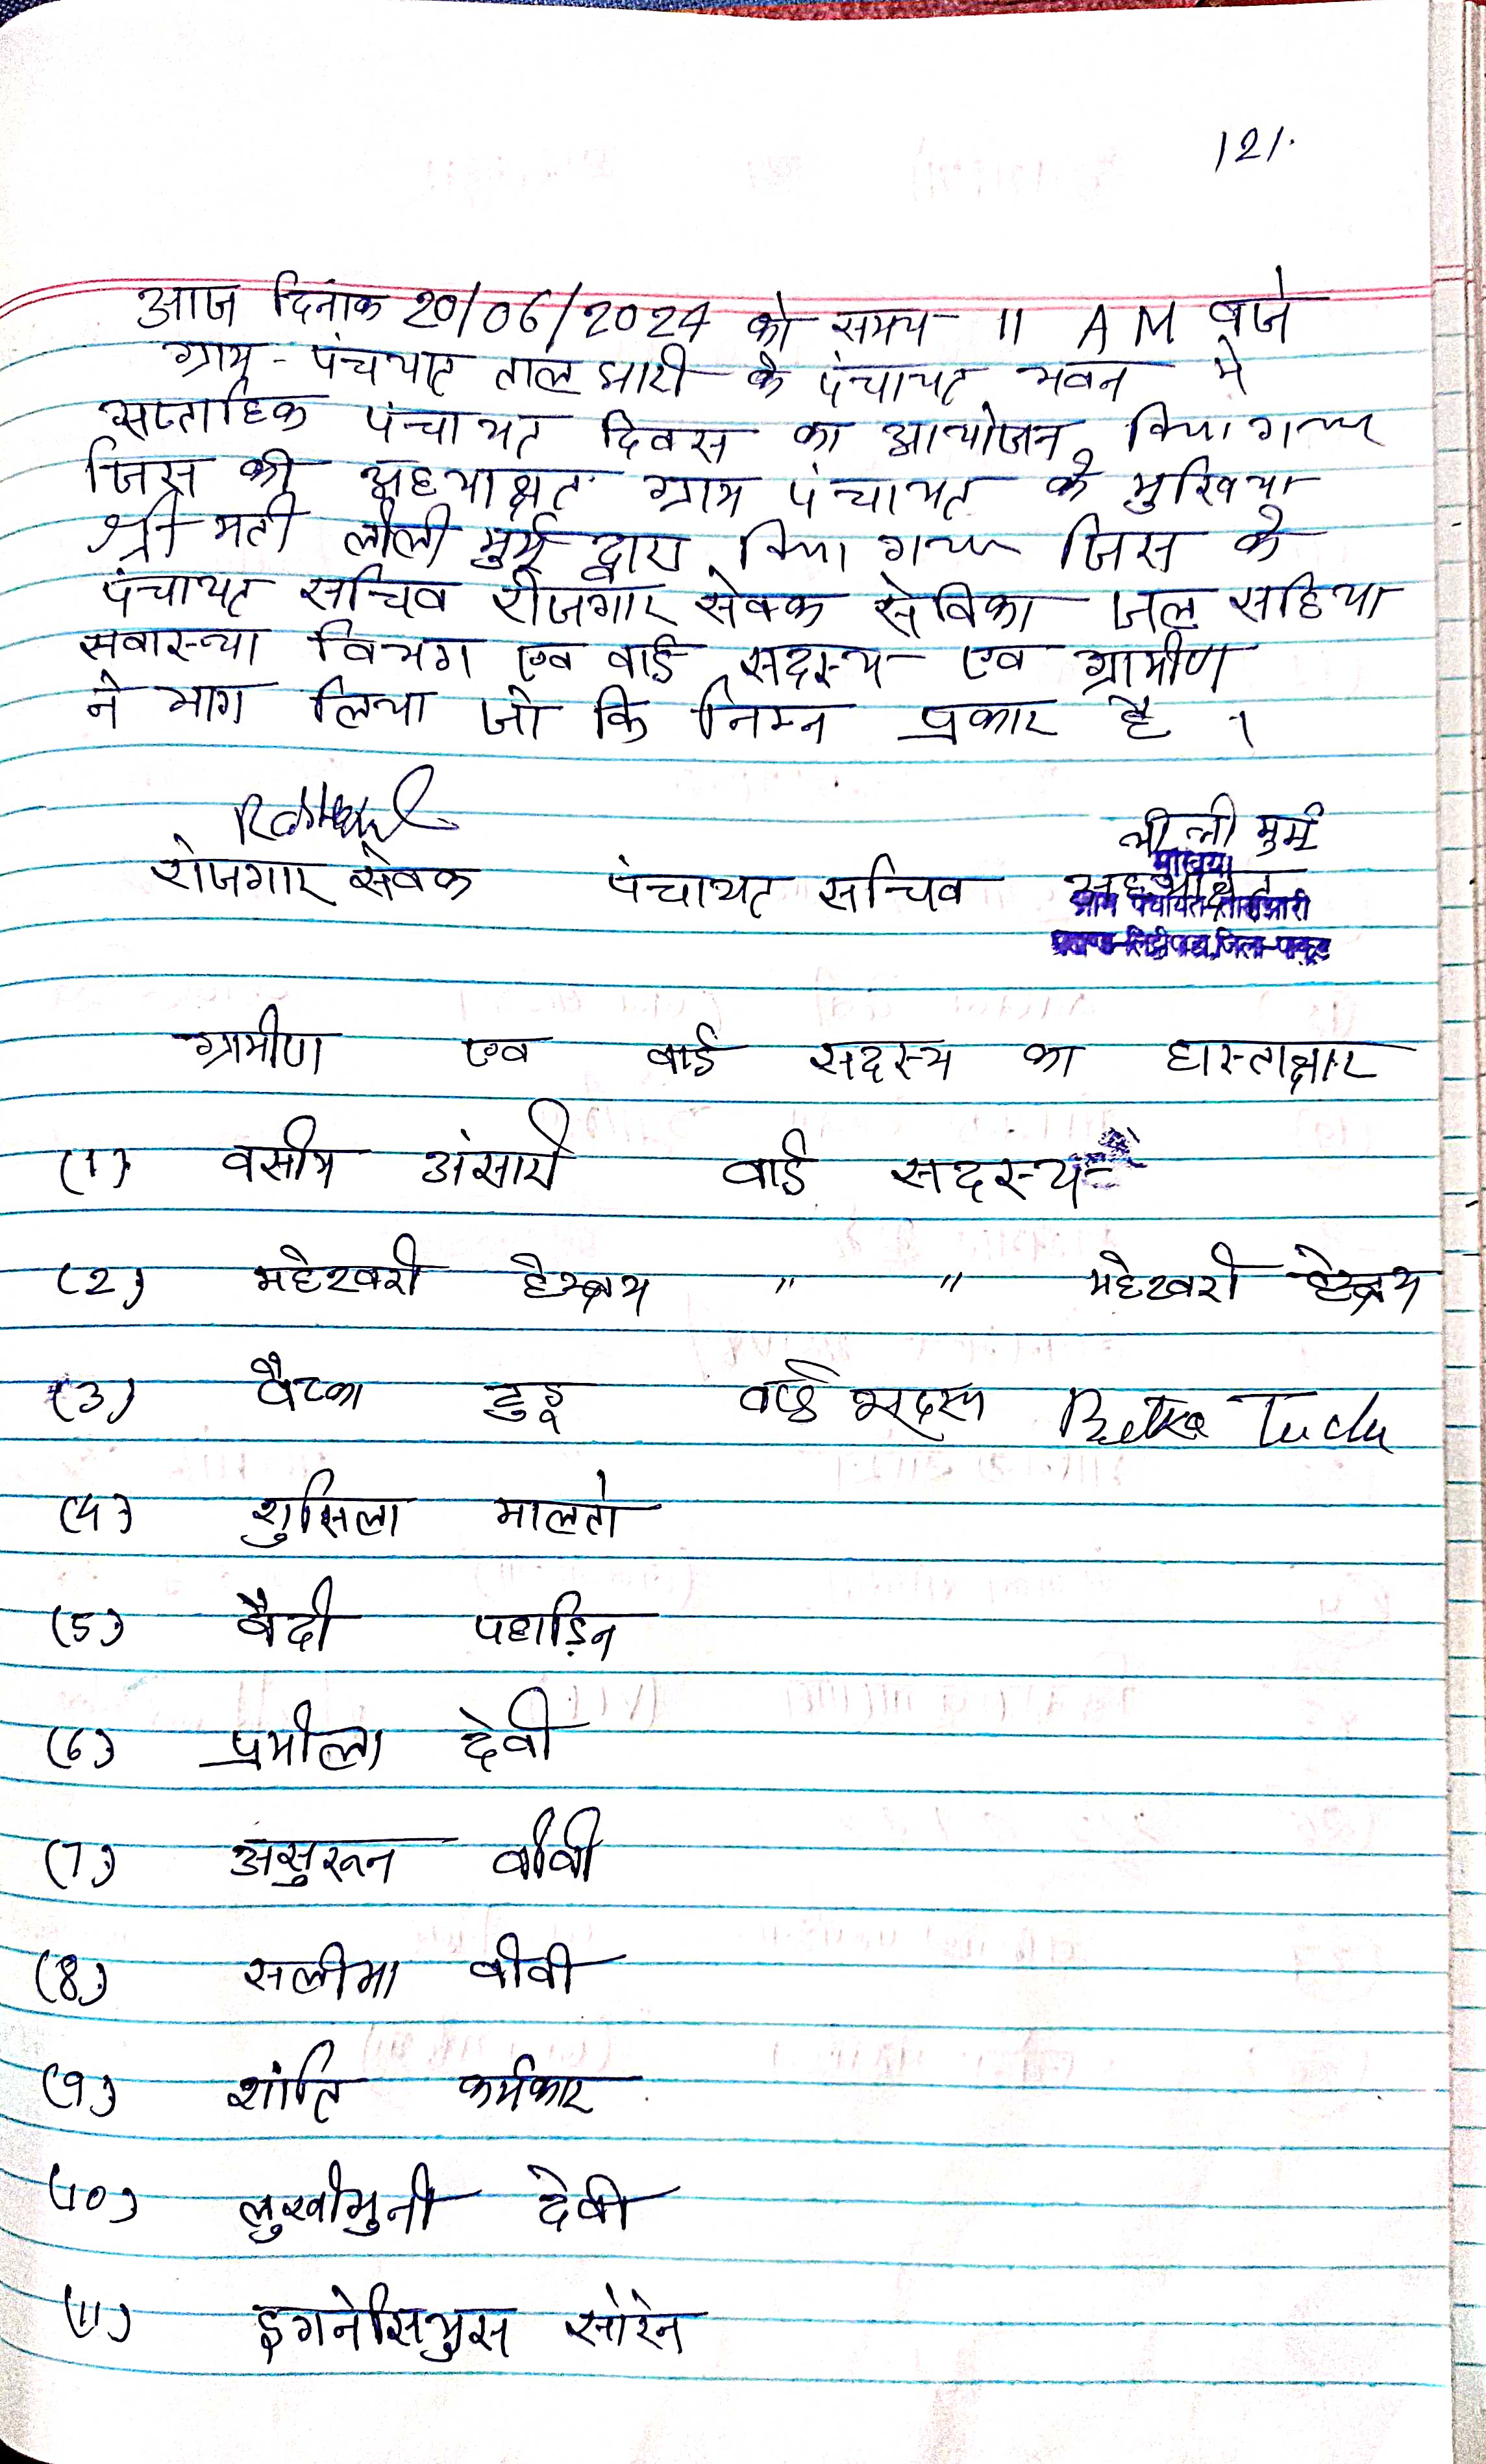 121.
आज दिनांक 20/06/2024 को समय 11 AM बजे
ग्राम - पंचयात तालझारी के पंचायत भवन मे
सप्ताहिक पंचायत दिवस का आयोजन किया गया
जिस की अहयाक्षत ग्राम पंचायत के मुखिया
श्री मती लीली मुर्मू द्वारा किया गया जिस के
पंचायत सचिव रोजगार सेवक सेविका जल सहिया
सवास्थ्या विभग एव वार्ड सदस्य एव ग्रामीण
ने भाग लिया जो कि निम्न प्रकार है ।
लीली मुर्मू
रोजगार सेवक पंचायत सचिव
मुखिया
ग्राम पंचायत-तालझारी
प्रखण्ड-लिट्टीपाड़ा, जिला-पाकुड़
ग्रामीण एव वार्ड सदस्य का हास्ताक्षार
(1) वसीम अंसारी वार्ड सदस्य
(2) महेश्वरी हेम्ब्रम " " महेश्वरी हेम्ब्रम
(3) वैटका टुडू वार्ड सदस्य Betka Tudu
(4) शुसिला मालतो
(5) वैदी पहाड़िन
(6) प्रमीला देवी
(7) असुरून वीवी
(8) सलीमा वीवी
(9) शांति कर्मकार
(10) लुखीमुनी देवी
(11) इगनेसियुस सोरेन